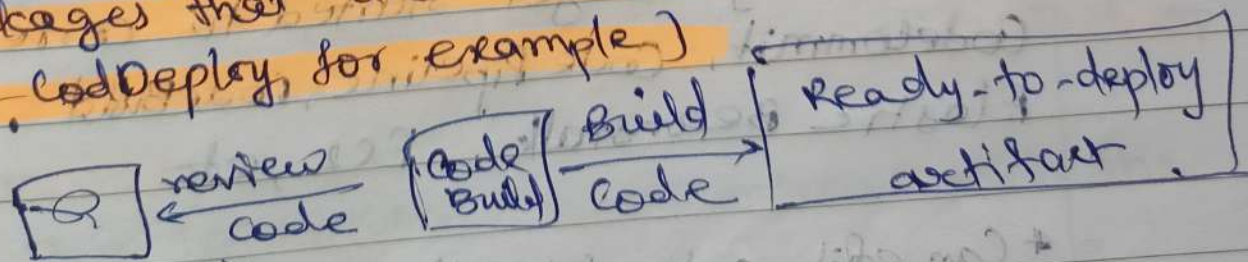 kages that
CodDeploy, for example)
review
code
Code
Build
Build
Code
Ready-to-deploy
artifact.